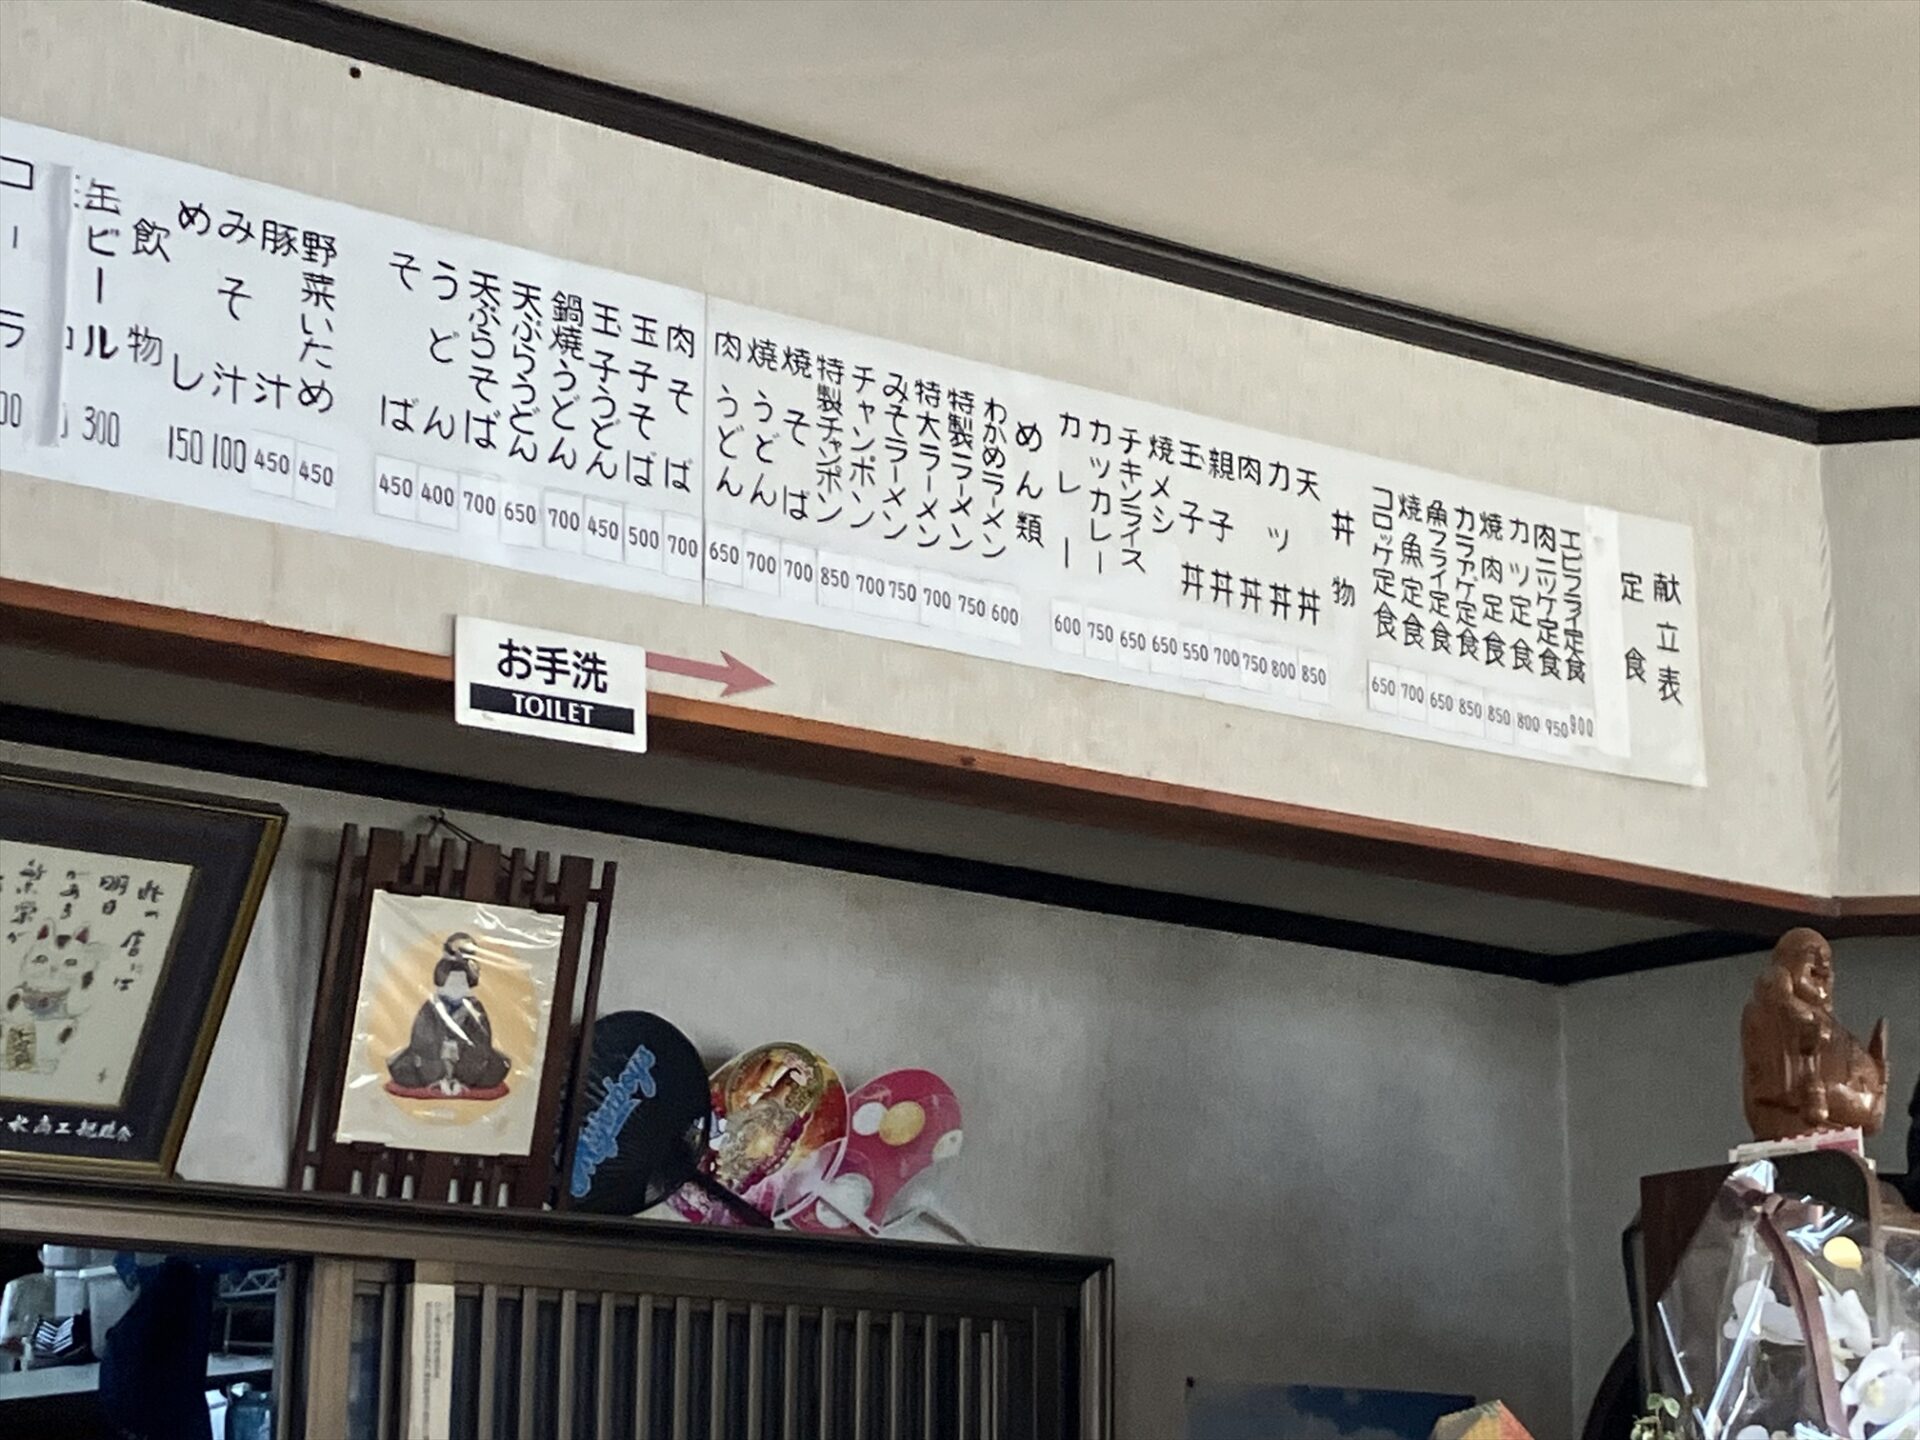 献立表
定食
エビフライ定食 900
肉ニツケ定食 950
カツ定食 800
焼肉定食 850
カラアゲ定食 850
魚フライ定食 650
焼魚定食 700
コロッケ定食 650
丼物
天丼 850
カツ丼 800
肉丼 750
親子丼 700
玉子丼 550
焼メシ 650
チキンライス 650
カツカレー 750
カレー 600
めん類
わかめラーメン 600
特製ラーメン 750
特大ラーメン 700
みそラーメン 750
チャンポン 700
特製チャンポン 850
焼そば 700
焼うどん 700
肉うどん 650
肉そば 700
玉子そば 500
玉子うどん 450
鍋焼うどん 700
天ぷらうどん 650
天ぷらそば 700
うどん 400
そば 450
野菜いため 450
豚汁 450
みそ汁 100
めし 150
飲物
缶ビール 300
コーラ
お手洗
TOILET
此の店には
明日
がある
繁栄が